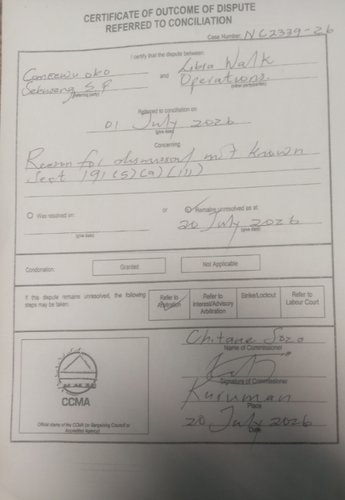 CERTIFICATE OF OUTCOME OF DISPUTE
REFERRED TO CONCILIATION
Case Number: NC2339-26
I certify that the dispute between:
Sebuseng S P and Libra Walk
Operations
(Referring party) (other party/parties)
Referred to conciliation on
01 July 2026
(give date)
Concerning
Reason for dismissal not known
Sect 191 (5)(a)(iii)
Was resolved on or Remains unresolved as at
20 July 2026
(give date) (give date)
Condonation: Granted Not Applicable
If the dispute remains unresolved, the following steps may be taken:
Refer to Arbitration Refer to Interest/Advisory Arbitration Strike/Lockout Refer to Labour Court
Name of Commissioner
Signature of Commissioner
Kuruman
Place
20 July 2026
Date
CCMA
Official stamp of the CCMA (or Bargaining Council or
Accredited Agency)